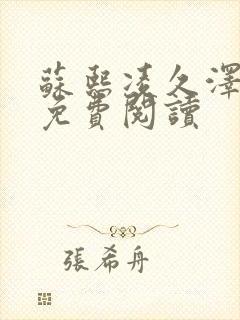 蘇熙凌久澤
免費閱讀
張希舟